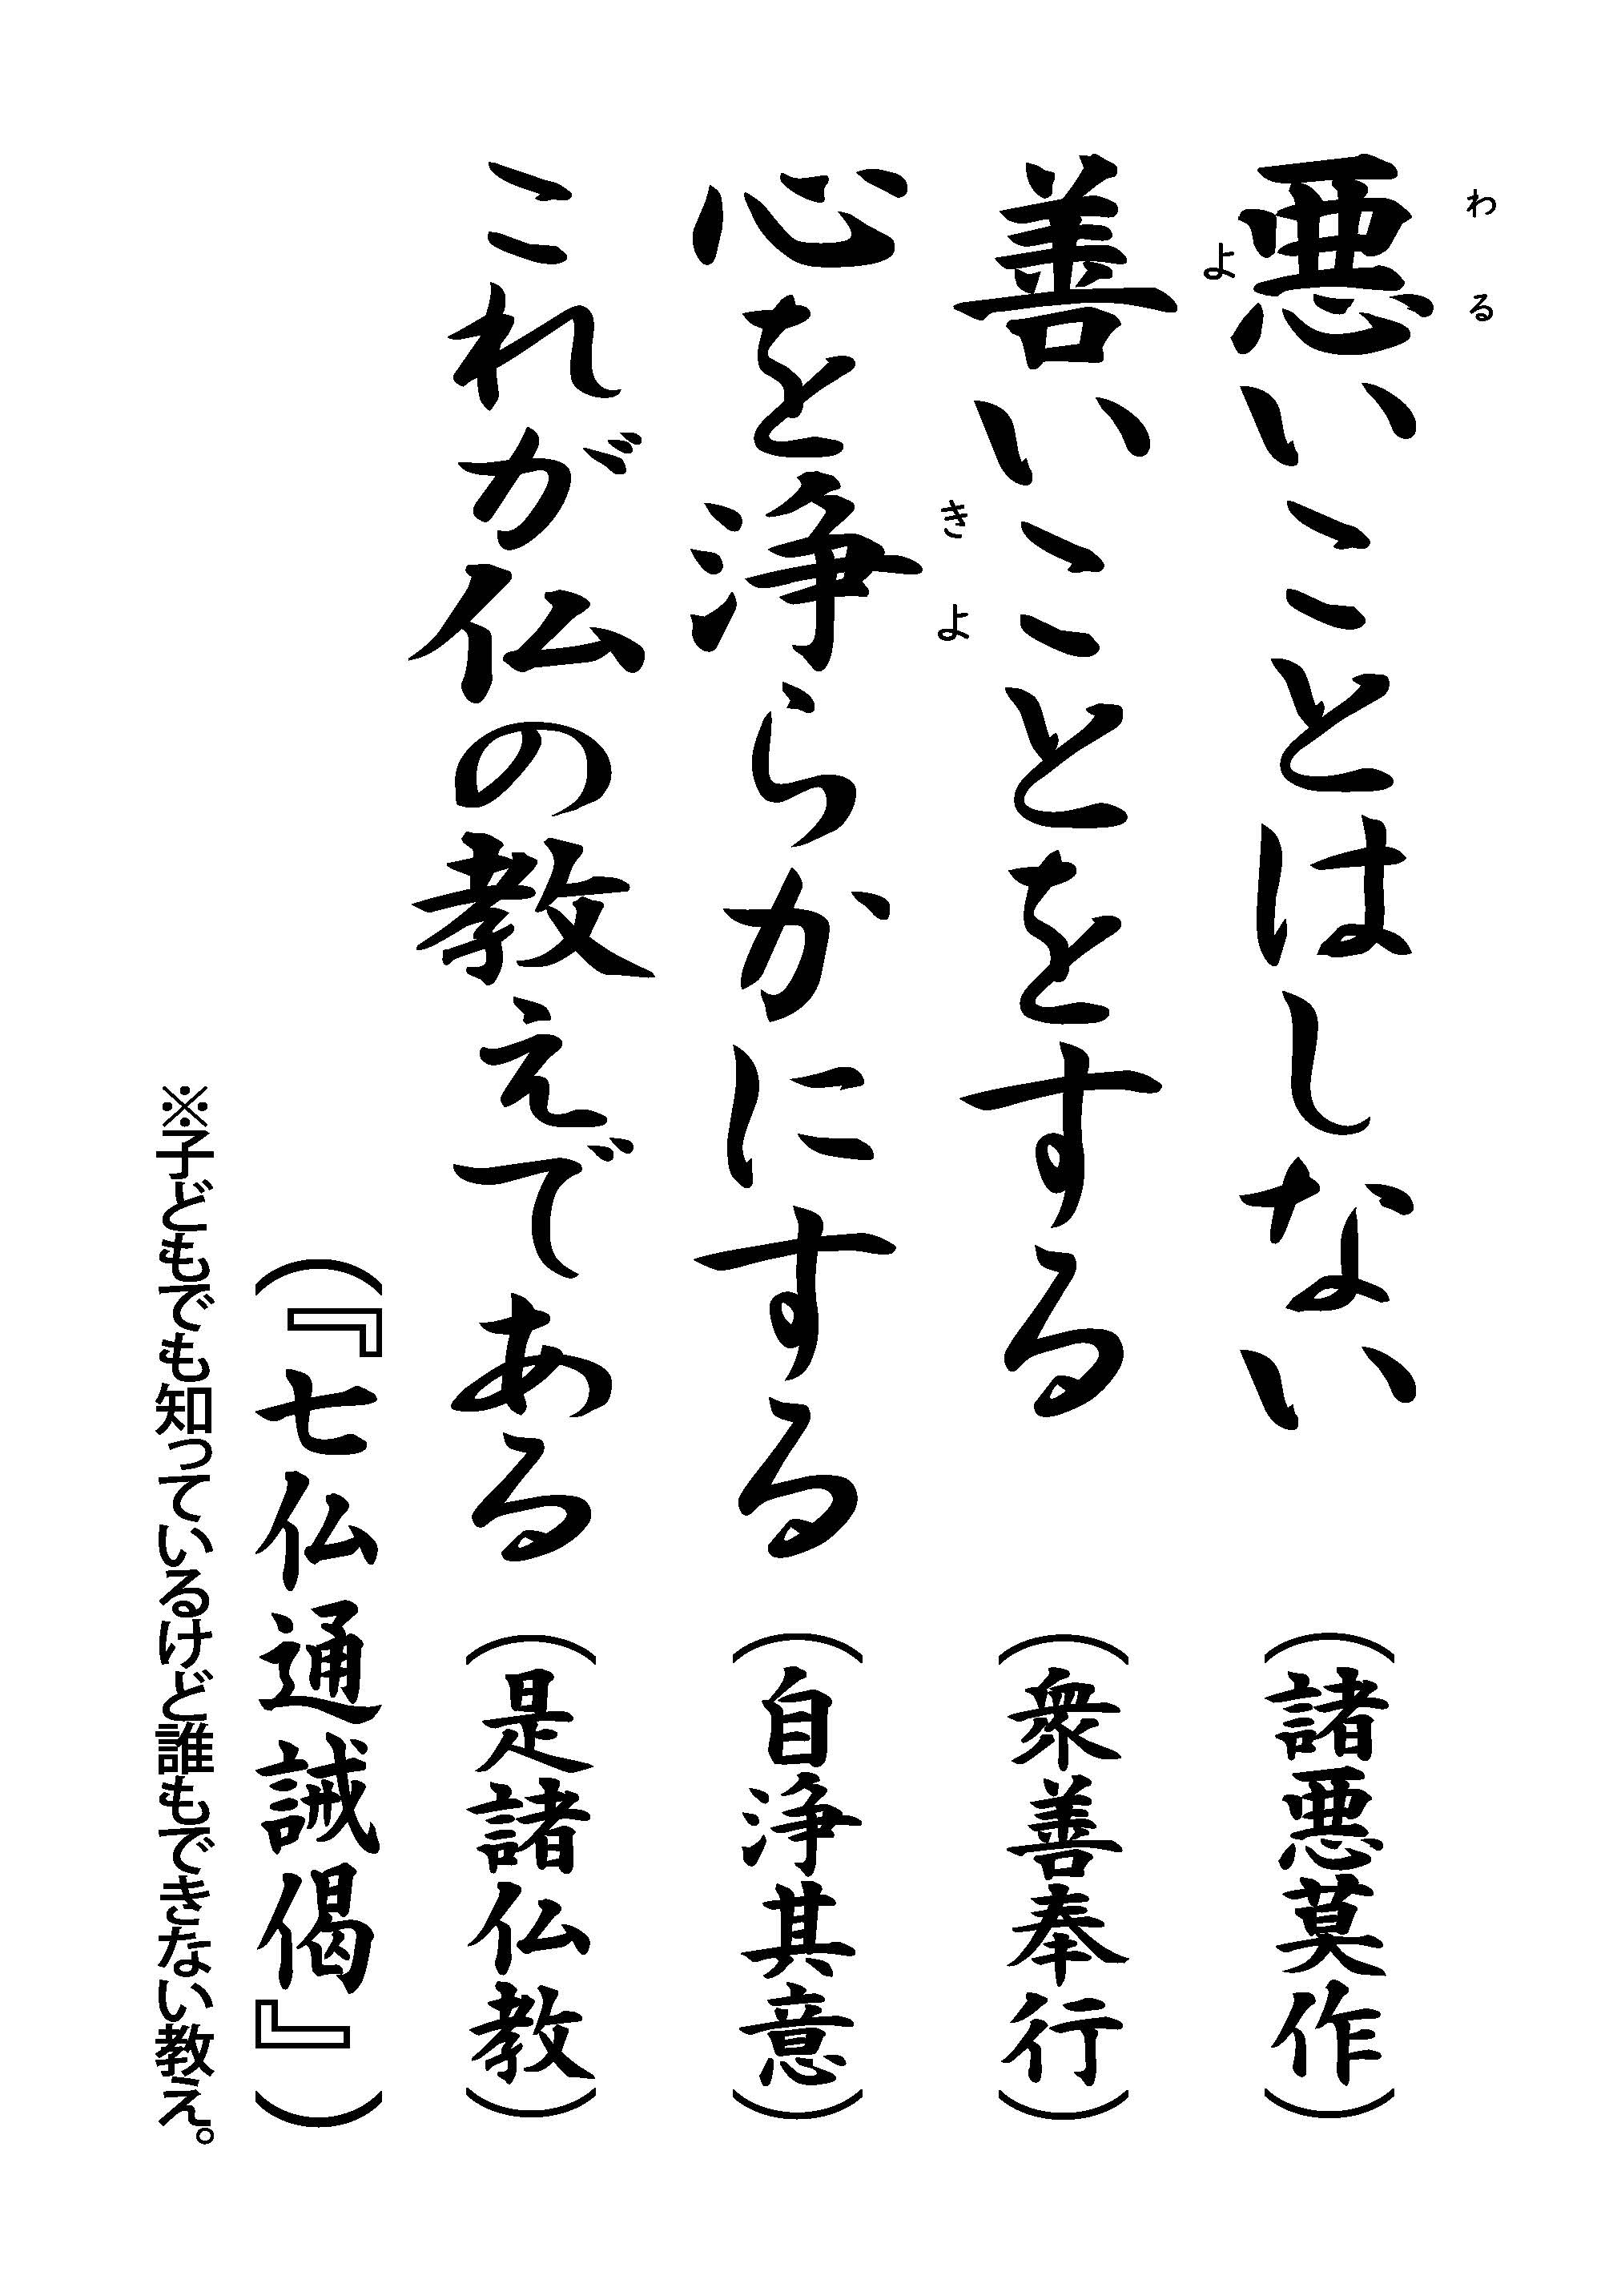 悪いことはしない（諸悪莫作）
善いことをする（衆善奉行）
心を浄らかにする（自浄其意）
これが仏の教えである（是諸仏教）
（『七仏通誡偈』）
※子どもでも知っているけど誰もできない教え。
わる
よ
きよ